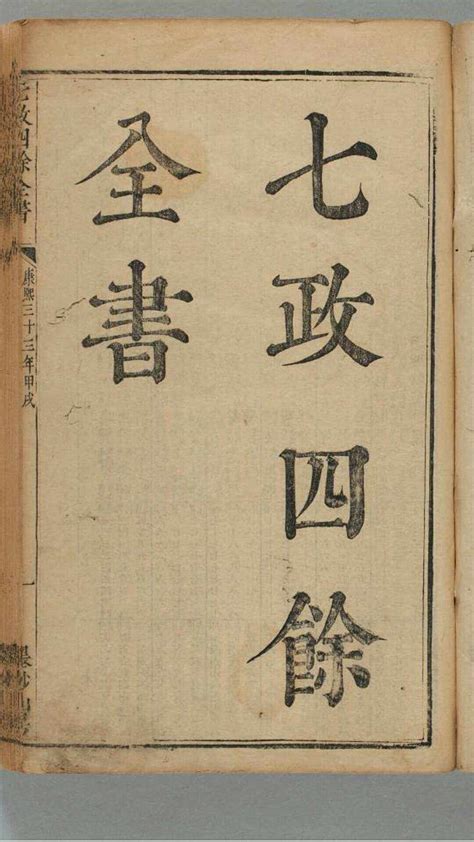 七政四餘
全書
七政四餘全書
康熙三十三年甲戌